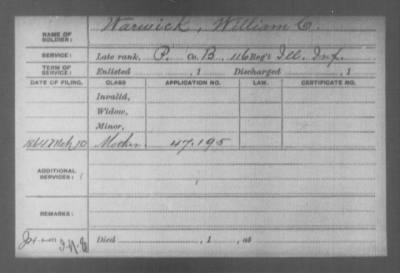 NAME OF SOLDIER: Warwick, William C.
SERVICE: Late rank, P. Co. B, 116 Reg't Ill. Inf.
TERM OF SERVICE: Enlisted , 1 Discharged , 1
DATE OF FILING. CLASS APPLICATION NO. LAW. CERTIFICATE NO.
Invalid,
Widow,
Minor,
1864 Mch 10 Mother 47.195
ADDITIONAL SERVICES:
REMARKS:
Died , 1 , at